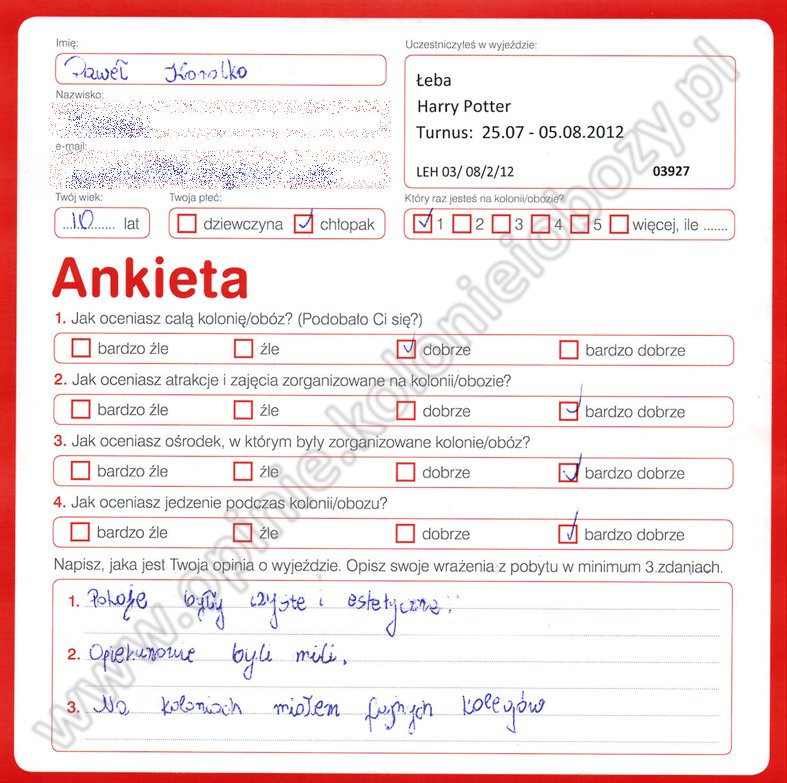 Imię:
Paweł Korolko
Uczestniczyłeś w wyjeździe:
Łeba
Harry Potter
Turnus: 25.07 - 05.08.2012
LEH 03/ 08/2/12 03927
Nazwisko:
e-mail:
Twój wiek:
...10....... lat
Twoja płeć:
dziewczyna chłopak
Który raz jesteś na kolonii/obozie?
1 2 3 4 5 więcej, ile .......
Ankieta
1. Jak oceniasz całą kolonię/obóz? (Podobało Ci się?)
bardzo źle źle dobrze bardzo dobrze
2. Jak oceniasz atrakcje i zajęcia zorganizowane na kolonii/obozie?
bardzo źle źle dobrze bardzo dobrze
3. Jak oceniasz ośrodek, w którym były zorganizowane kolonie/obóz?
bardzo źle źle dobrze bardzo dobrze
4. Jak oceniasz jedzenie podczas kolonii/obozu?
bardzo źle źle dobrze bardzo dobrze
Napisz, jaka jest Twoja opinia o wyjeździe. Opisz swoje wrażenia z pobytu w minimum 3.zdaniach.
1. Pokoje były czyste i estetyczne.
2. Opiekunowie byli mili.
3. Na koloniach miałem fajnych kolegów
www.opinie.kolonieiobozy.pl